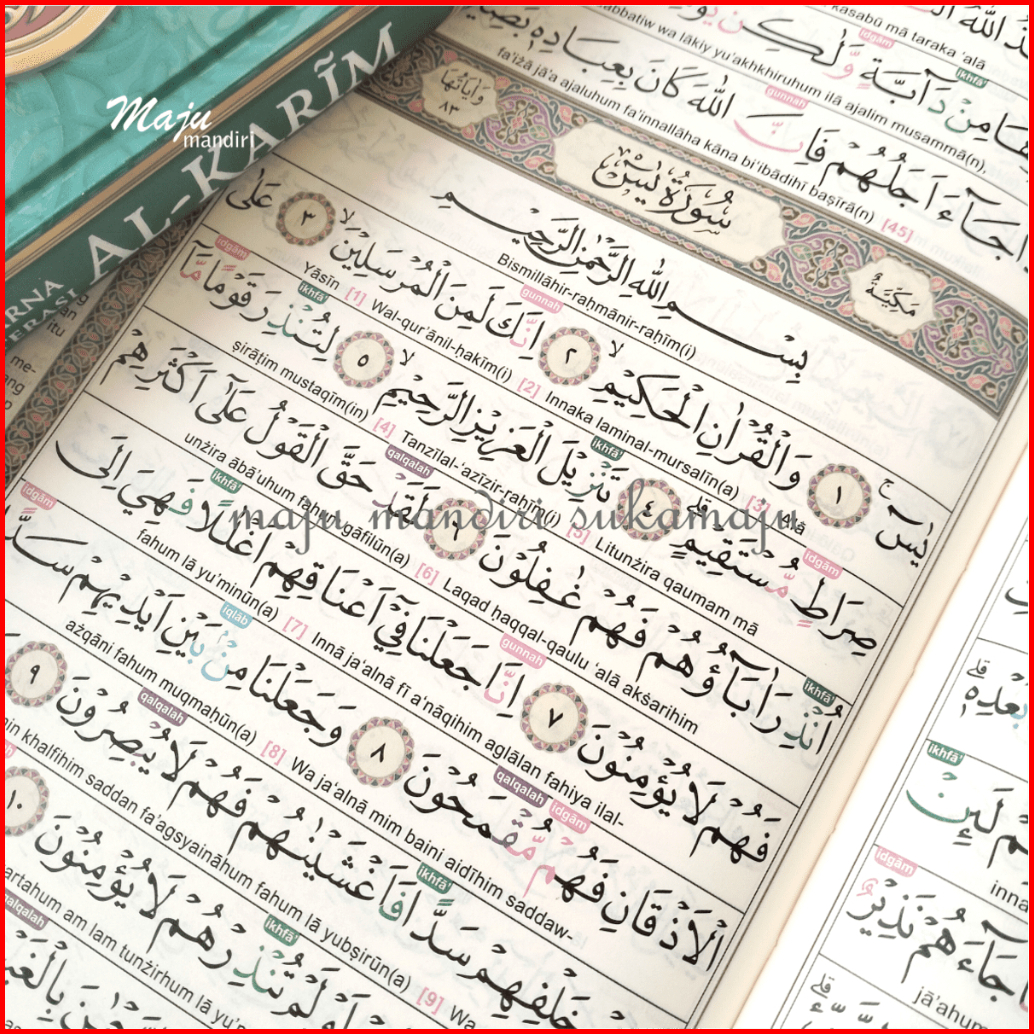 Maju
mandiri
AL-KARĪM
kasabū mā taraka ‘alā
دَآبَّةٍ وَّلٰكِنْ
idgām
ikhfā’
wa lākiy yu’akhkhiruhum ilā ajalim musammā(n),
جَآءَ اَجَلُهُمْ فَاِنَّ اللّٰهَ كَانَ بِعِبَادِهٖ
gunnah
fa’iżā jā’a ajaluhum fa’innallāha kāna bi‘ibādihī baṣīrā(n) [45]
وَاٰيَاتُهَا ٨٣
سُوْرَةُ يٰسۤ
مَكِّيَّةٌ
بِسْمِ اللّٰهِ الرَّحْمٰنِ الرَّحِيْمِ
Bismillāhir-raḥmānir-raḥīm(i)
يٰسۤ ۚ ١ وَالْقُرْاٰنِ الْحَكِيْمِۙ ٢ اِنَّكَ لَمِنَ الْمُرْسَلِيْنَۙ ٣ عَلٰى
gunnah
Yāsīn [1] Wal-qur’ānil-ḥakīm(i) [2] Innaka laminal-mursalīn(a) [3]
صِرَاطٍ مُّسْتَقِيْمٍۗ ٤ تَنْزِيْلَ الْعَزِيْزِ الرَّحِيْمِۙ ٥ لِتُنْذِرَ قَوْمًا مَّآ
idgām
ikhfā’
ikhfā’
idgām
ṣirāṭim mustaqīm(in) [4] Tanzīlal-‘azīzir-raḥīm(i) [5] Litunżira qaumam mā
اُنْذِرَ اٰبَاۤؤُهُمْ فَهُمْ غٰفِلُوْنَ ٦ لَقَدْ حَقَّ الْقَوْلُ عَلٰٓى اَكْثَرِهِمْ
ikhfā’
qalqalah
unżira ābā’uhum fahum gāfilūn(a) [6] Laqad ḥaqqal-qaulu ‘alā akṡarihim
maju mandiri sukamaju
فَهُمْ لَا يُؤْمِنُوْنَ ٧ اِنَّا جَعَلْنَا فِيْٓ اَعْنَاقِهِمْ اَغْلٰلًا فَهِيَ اِلَى
gunnah
ikhfā’
fahum lā yu’minūn(a) [7] Innā ja‘alnā fī a‘nāqihim aglālan fahiya ilal-
الْاَذْقَانِ فَهُمْ مُّقْمَحُوْنَ ٨ وَجَعَلْنَا مِنْۢ بَيْنِ اَيْدِيْهِمْ سَدًّا
idgām
qalqalah
iqlāb
idgām
ażqāni fahum muqmaḥūn(a) [8] Wa ja‘alnā mim baini aidīhim saddaw-
خَلْفِهِمْ سَدًّا فَاَغْشَيْنٰهُمْ فَهُمْ لَا يُبْصِرُوْنَ ٩
ikhfā’
qalqalah
khalfihim saddan fa’agsyaināhum fahum lā yubṣirūn(a) [9] Wa
لَمْ تُنْذِرْهُمْ لَا يُؤْمِنُوْنَ ١٠
ikhfā’
am lam tunżirhum lā
qalqalah
بِالْغَيْبِ
بَعْدِهٖۗ
ikhfā’
لَىِٕنْ
idgām
جَاۤءَهُمْ نَذِيْرٌ
jā’ahum